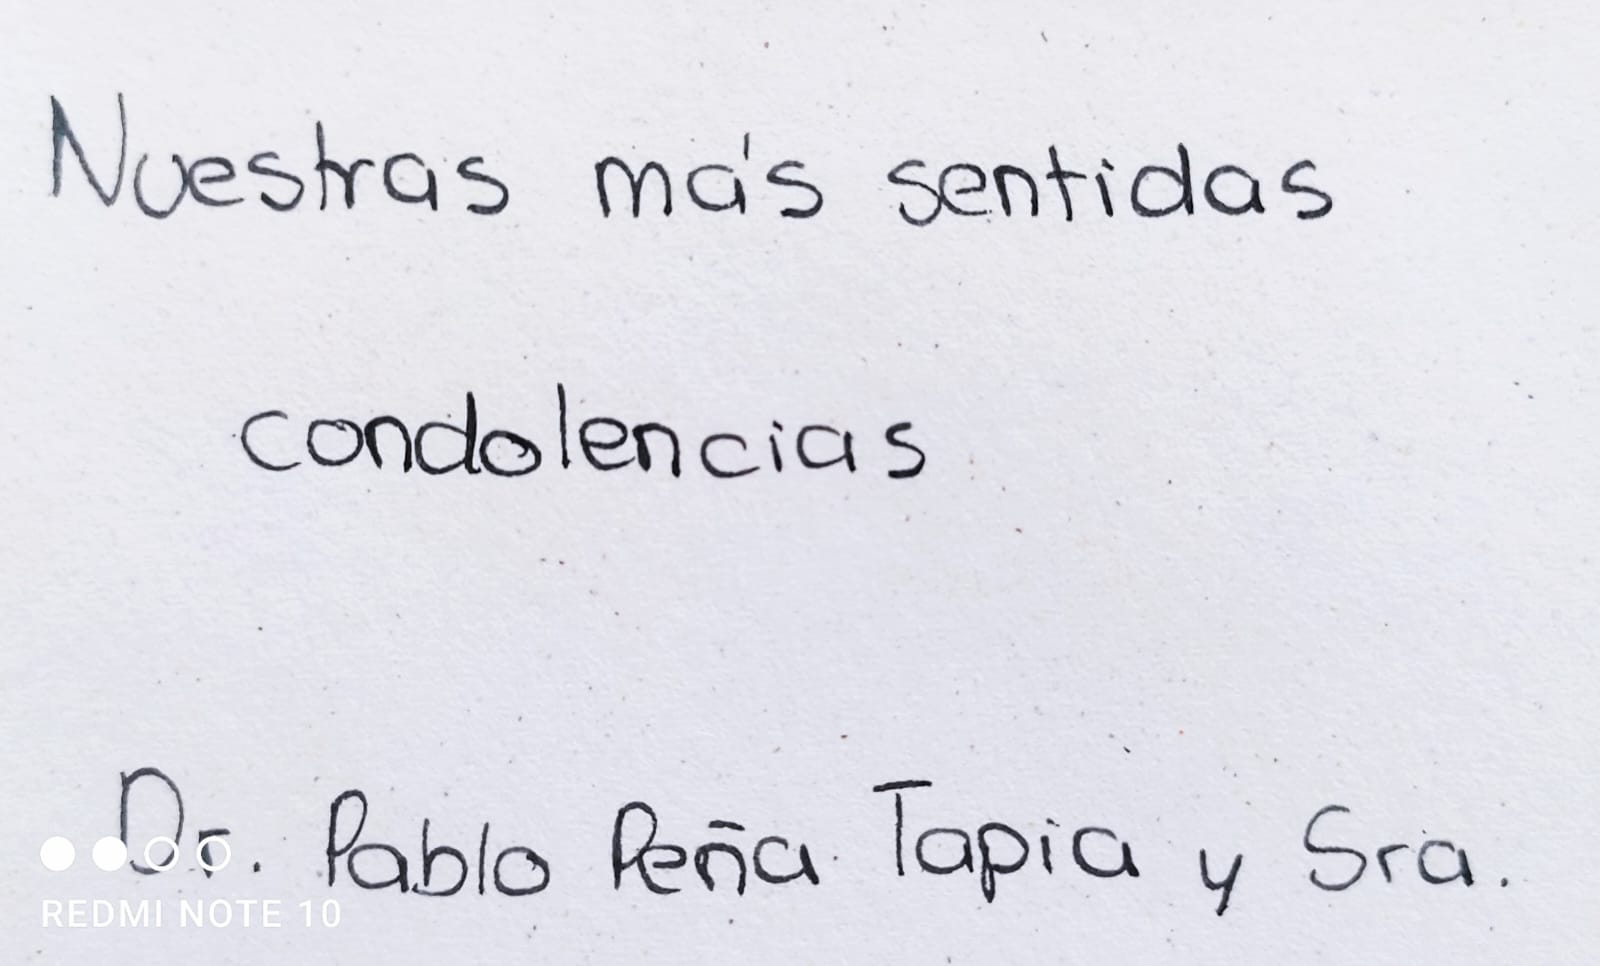 Nuestras más sentidas
condolencias
Dr. Pablo Peña Tapia y Sra.
REDMI NOTE 10